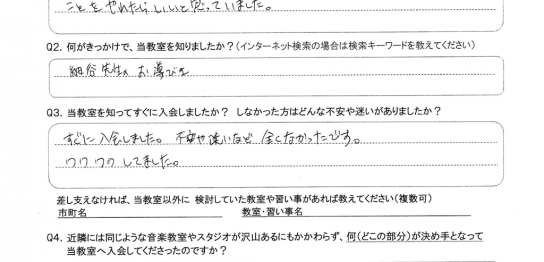 ことをやれたらいいと思っていました。
Q2. 何がきっかけで、当教室を知りましたか？（インターネット検索の場合は検索キーワードを教えてください）
細谷先生のお導びき
Q3. 当教室を知ってすぐに入会しましたか？ しなかった方はどんな不安や迷いがありましたか？
すぐに入会しました。不安や迷いなど全くなかったです。
ワクワクしてました。
差し支えなければ、当教室以外に 検討していた教室や習い事があれば教えてください（複数可）
市町名 教室・習い事名
Q4. 近隣には同じような音楽教室やスタジオが沢山あるにもかかわらず、何（どこの部分）が決め手となって
当教室へ入会してくださったのですか？